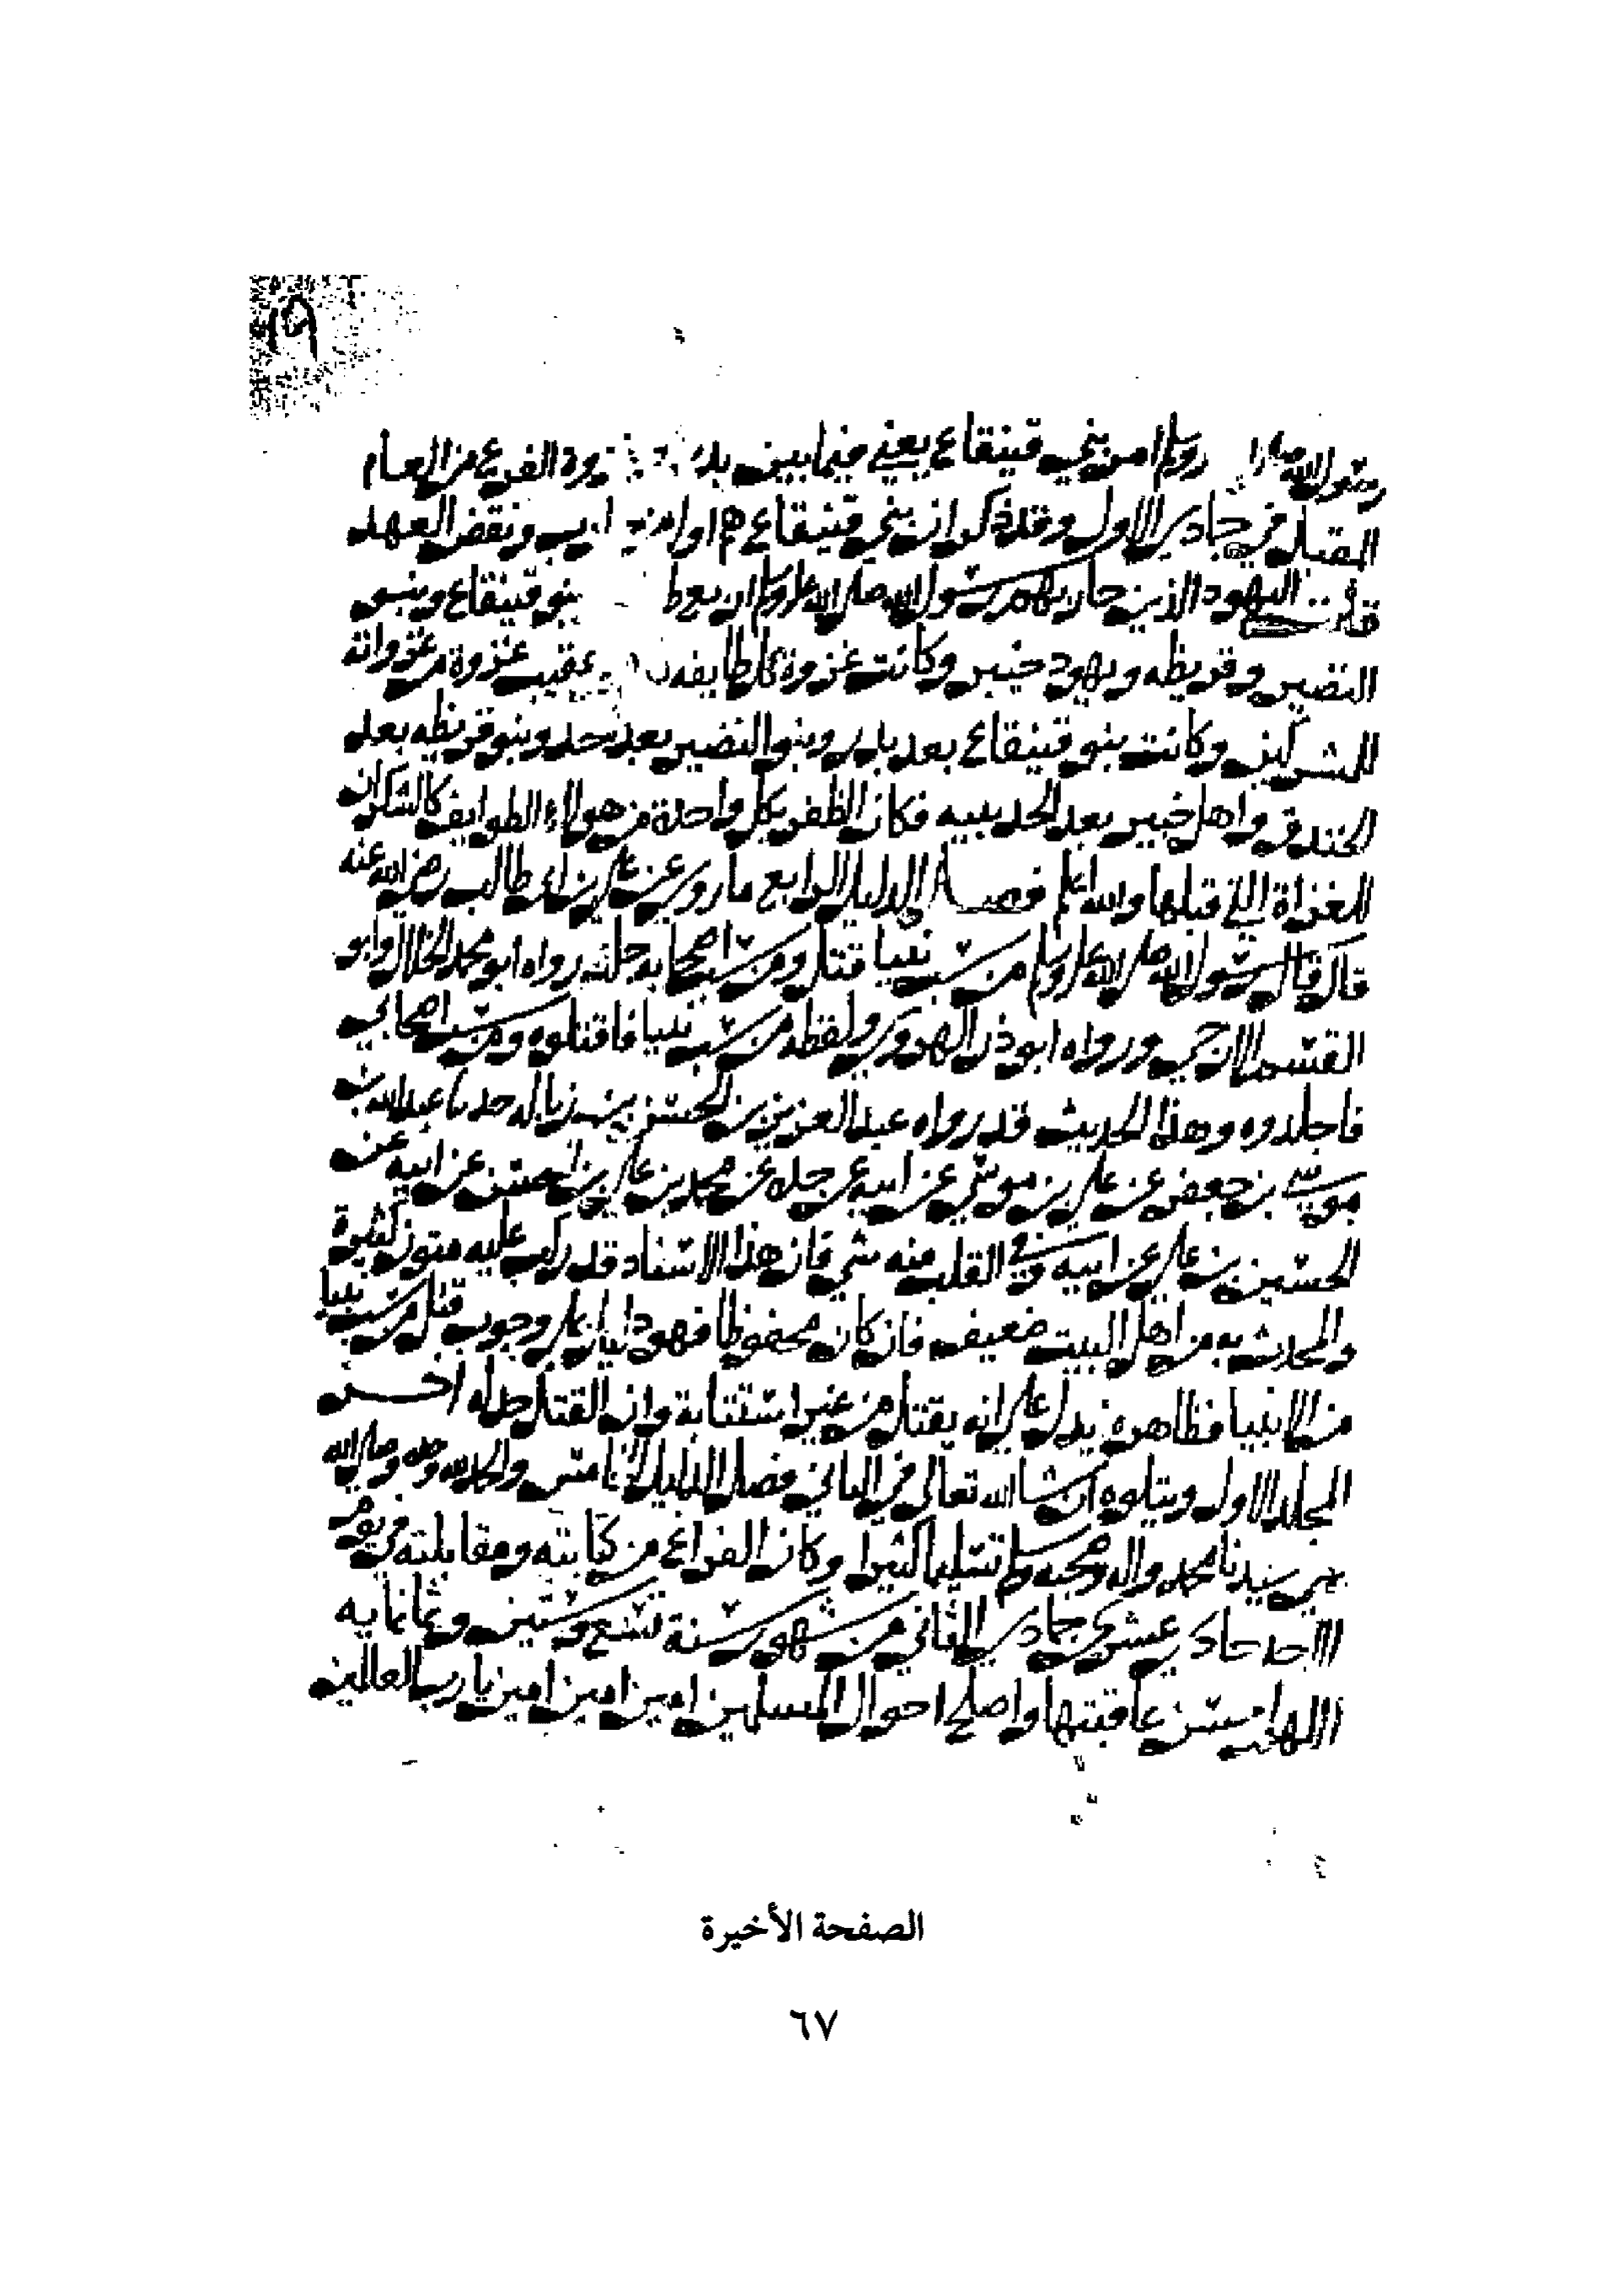 رسول الله صلى وسلم امر بني قينقاع يعني فيما بين بدر وغزوة الفرع من العام
المقبل في جمادى الاول وقد ذكر ان بني قينقاع هم اول من حارب ونقض العهد
قلت اليهود الذين حاربهم رسول الله صلى الله عليه وسلم اربع بنو قينقاع وبني
النضير وقريظه ويهود خيبر وكانت غزوة كل طايفه عقيب غزوة من غزواته
للمشركين وكانت بنو قينقاع بعد بدر وبنو النضير بعد احد وبنو قريظه بعد
الخندق واهل خيبر بعد الحديبيه فكان الظفر بكل واحدة من هولاء الطوايف كالشكران
للغزاة التي قبلها والله اعلم فصل الدليل الرابع ما روي عن علي بن ابي طالب رضي الله عنه
قال قال رسول الله صلى الله عليه وسلم من سب نبيا قتل ومن سب اصحابه جلد رواه ابو محمد الخلال وابو
القسم الازجي ورواه ابو ذر الهروي ولفظه من سب نبيا فاقتلوه ومن سب اصحابي
فاجلدوه وهذا الحديث قد رواه عبد العزيز بن الحسن بن زباله حدثنا عبد الله بن
موسى بن جعفر عن علي بن موسى عن ابيه عن جده عن محمد بن علي بن الحسين عن ابيه عن
الحسين بن علي عن ابيه وفي القلب منه شي فان هذا الاسناد قد ركب عليه متون كثيرة
والمحدث به من اهل البيت ضعيف فان كان محفوظا فهو دليل على وجوب قتل من سب نبيا
من الانبيا فظاهره يدل على انه يقتل من غير استتابة وان القتل حد له اخر
المجلد الاول ويتلوه ان شا الله تعالى في الثاني فصل الدليل الخامس والحمد لله وحده وصلى الله
على سيدنا محمد واله وصحبه وسلم تسليما كثيرا وكان الفراغ من كتابته ومقابلته في يوم
الاحد حادي عشري جمادي الثاني من شهور سنة تسع وستين وثمانمايه
اللهم احسن عاقبتها واصلح احوال المسلمين امين امين امين يا رب العالمين
الصفحة الأخيرة
٦٧